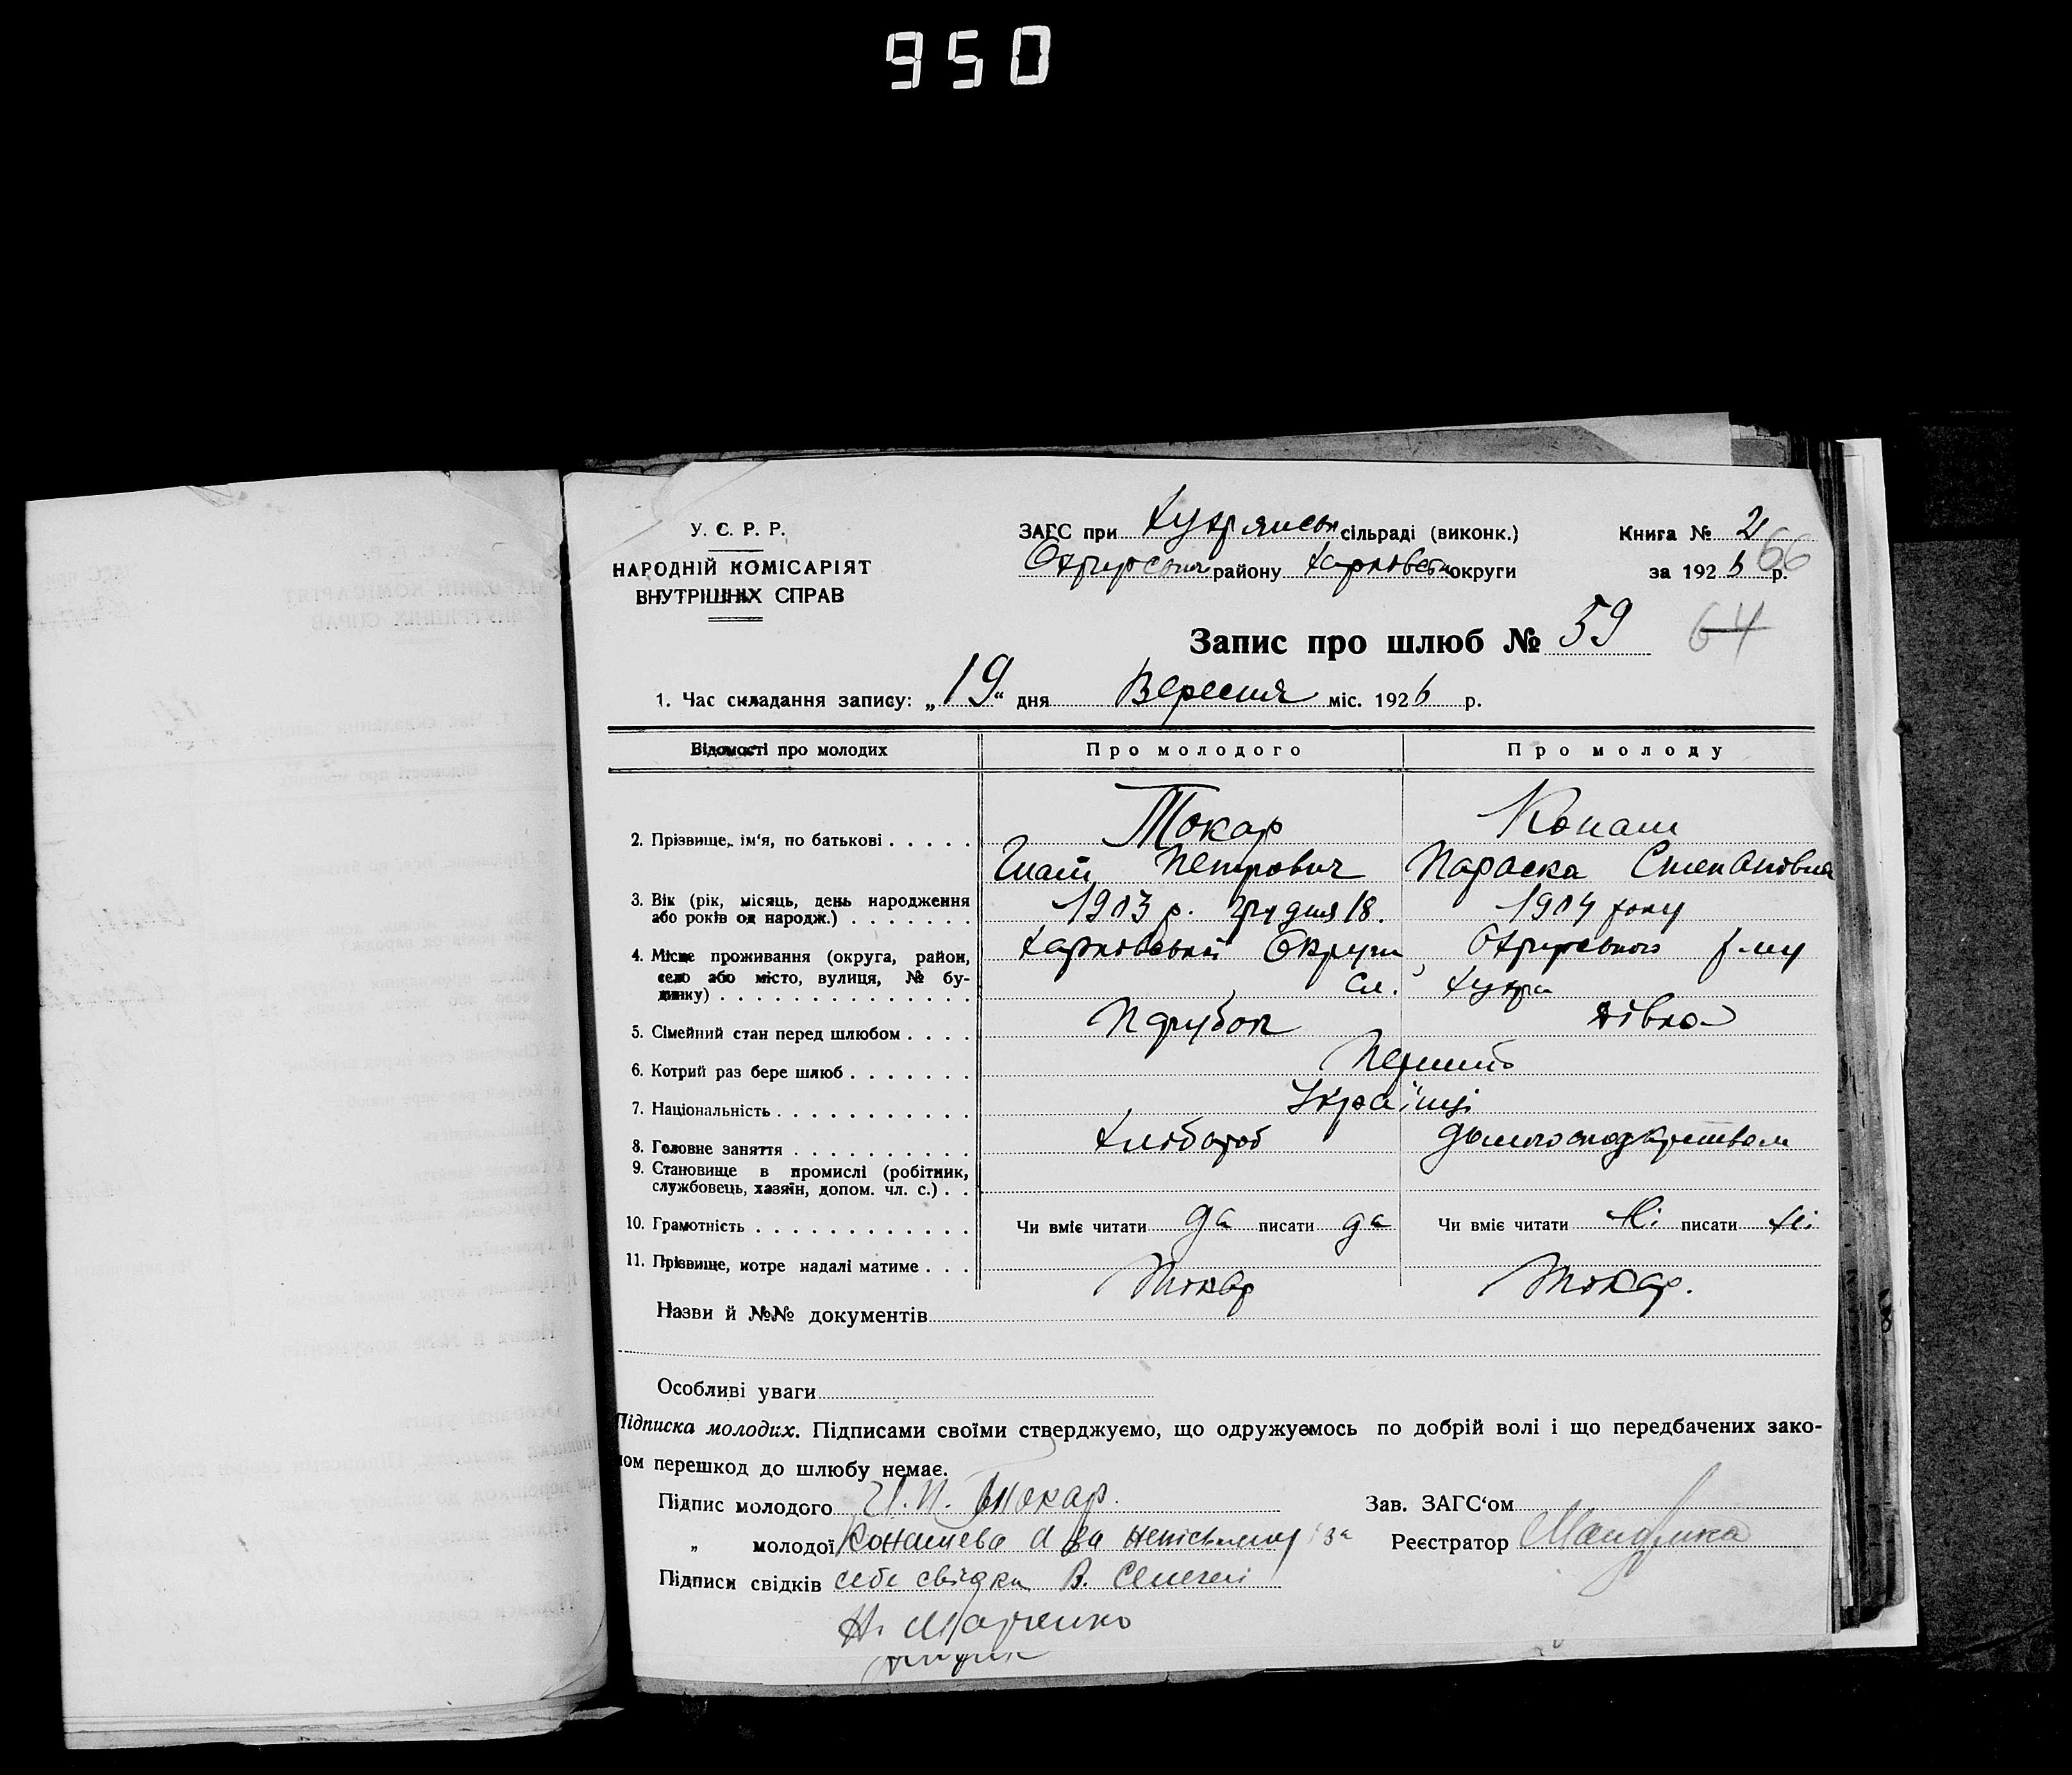 950
У. С. Р. Р.
НАРОДНІЙ КОМІСАРІЯТ
ВНУТРІШНІХ СПРАВ
ЗАГС при Хухрянськ сільраді (виконк.)
Охтирськ району Харківськ округи
Книга № 2
66
за 1926 р.
Запис про шлюб № 59
64
1. Час складання запису: „19“ дня Вересня міс. 1926 р.
Відомості про молодих
Про молодого
Про молоду
2. Прізвище, ім'я, по батькові
Токар
Петрович
Конаш
Параска Степановна
3. Вік (рік, місяць, день народження або років од народж.)
1903 р. Грудня 18.
1904 року
4. Місце проживання (округа, район, село або місто, вулиця, № будинку)
Харковської Округи, Охтирського р-ну
Сл. Хухра
5. Сімейний стан перед шлюбом
Парубок
Дівка
6. Котрий раз бере шлюб
Перший
7. Національність
Українці
8. Головне заняття
Хлібороб
9. Становище в промислі (робітник, службовець, хазяїн, допом. чл. с.)
10. Грамотність
Чи вміє читати да писати да
Чи вміє читати Ні писати Ні
11. Прізвище, котре надалі матиме
Токар
Токар.
Назви й №№ документів
Особливі уваги
Підписка молодих. Підписами своїми стверджуємо, що одружуємось по добрій волі і що передбачених зако-
ном перешкод до шлюбу немає.
Підпис молодого И. П. Токар.
Зав. ЗАГС‘ом
„ молодої Конашева а за неписьмену за
Реєстратор
Підписи свідків себе свідки В.
Н. Марченко